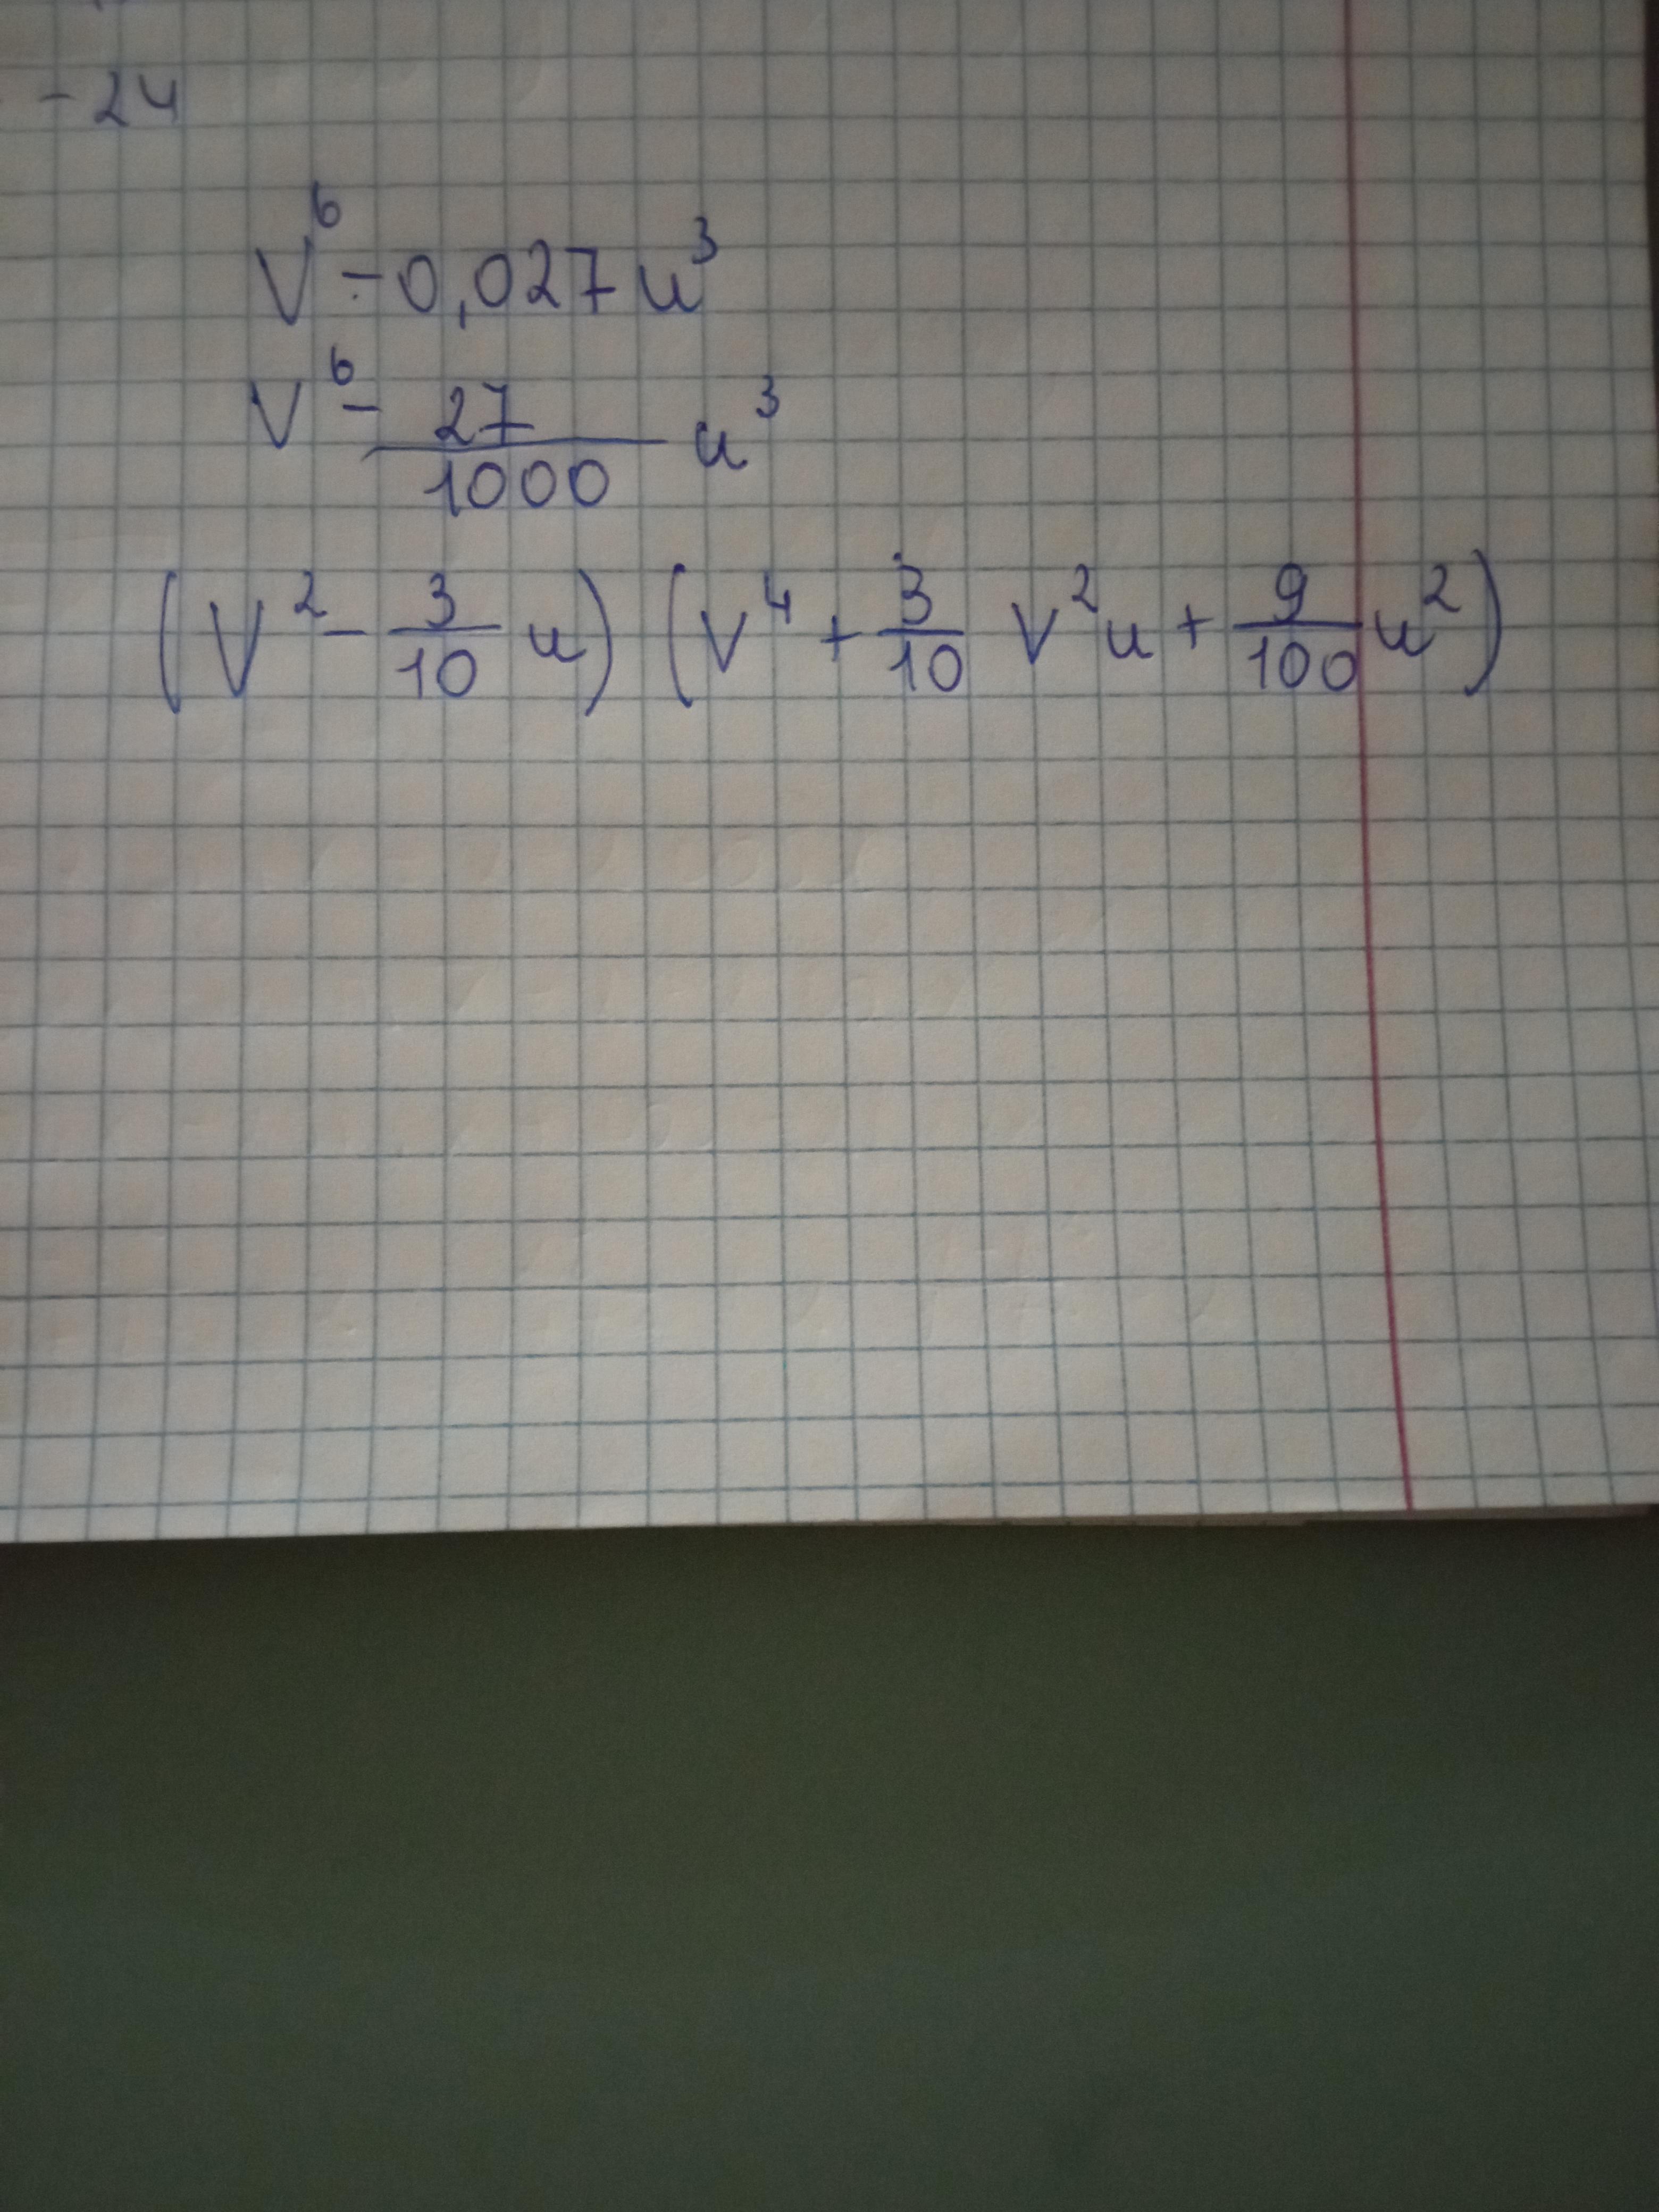 -24
V⁶-0,027u³
V⁶- 27/1000 u³
(V²- 3/10 u) (V⁴+ 3/10 V²u+ 9/100 u²)